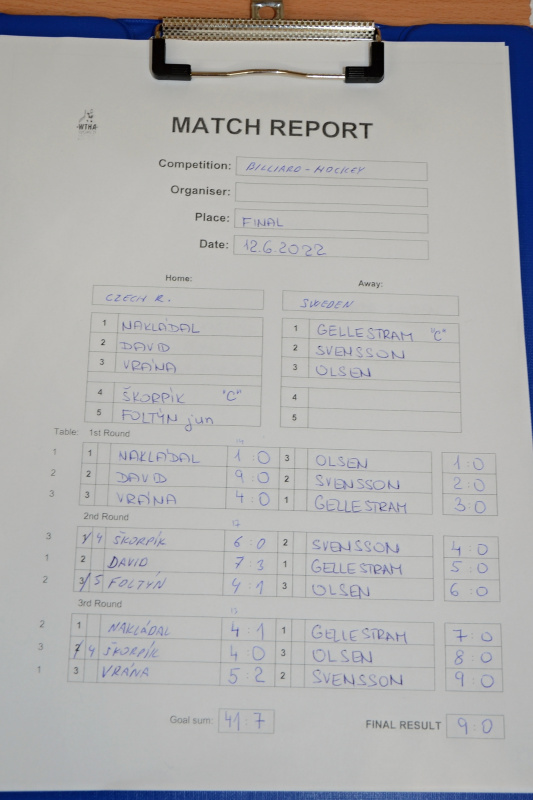 WTHA
MATCH REPORT
Competition: BILLIARD - HOCKEY
Organiser:
Place: FINAL
Date: 12.6.2022
Home: Away:
CZECH R. SWEDEN
1 NAKLÁDAL 1 GELLESTRAM "C"
2 DAVID 2 SVENSSON
3 VRÁNA 3 OLSEN
4 ŠKORPÍK "C" 4
5 FOLTÝN jun 5
Table: 1st Round
1 1 NAKLÁDAL 1:0 3 OLSEN 1:0
2 2 DAVID 9:0 2 SVENSSON 2:0
3 3 VRÁNA 4:0 1 GELLESTRAM 3:0
2nd Round
3 1 4 ŠKORPÍK 6:0 2 SVENSSON 4:0
1 2 DAVID 7:3 1 GELLESTRAM 5:0
2 3 5 FOLTÝN 4:1 3 OLSEN 6:0
3rd Round
2 1 NAKLÁDAL 4:1 1 GELLESTRAM 7:0
3 2 4 ŠKORPÍK 4:0 3 OLSEN 8:0
1 3 VRÁNA 5:2 2 SVENSSON 9:0
Goal sum: 41:7 FINAL RESULT 9:0